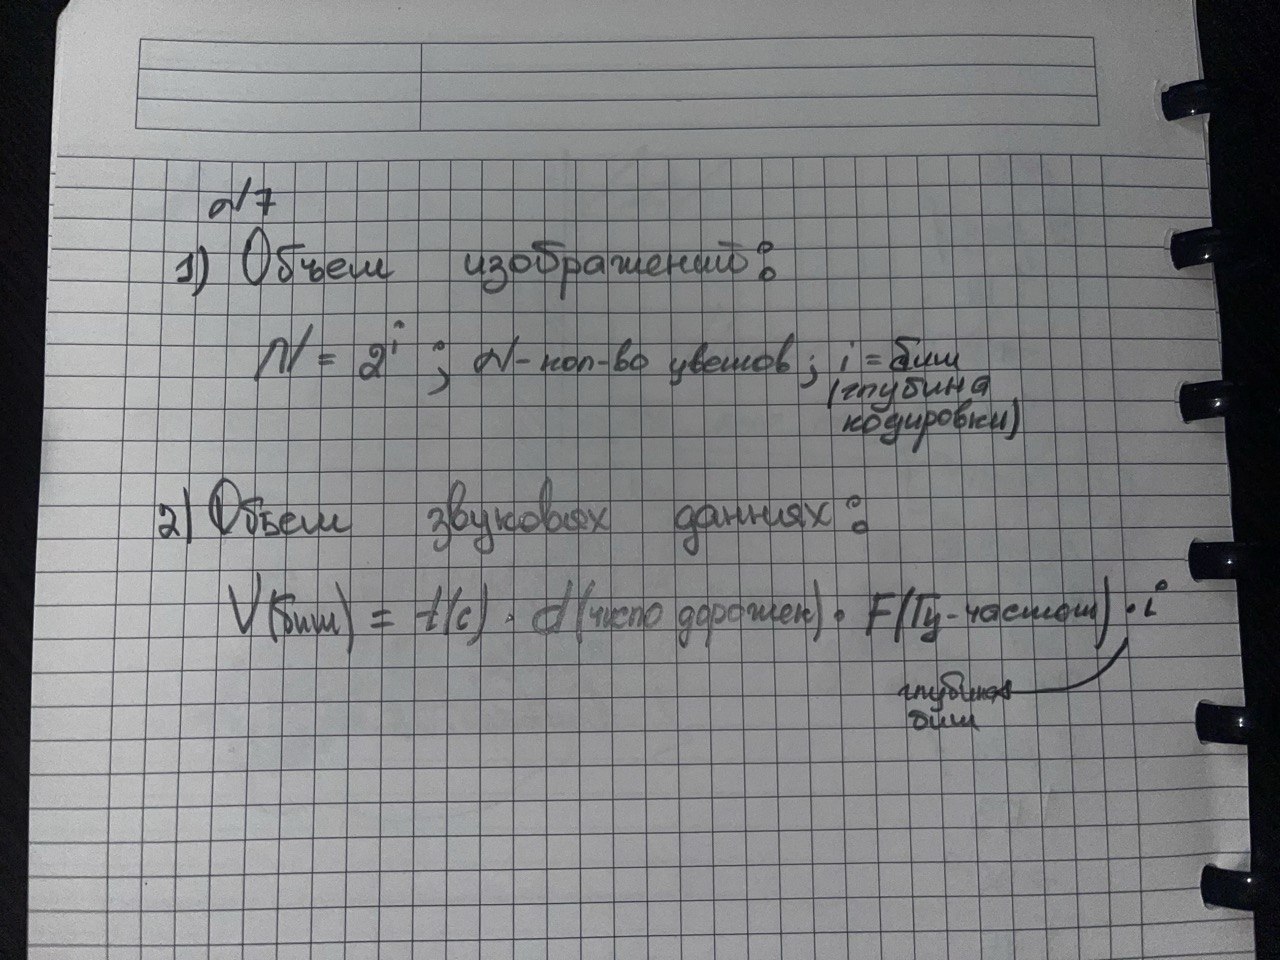 №7
1) Объем изображений:
N = 2^i ; N - кол-во цветов; i = бит
(глубина
кодировки)
2) Объем звуковых данных:
V(бит) = t(с) · d(число дорожек) · F(Гц-частот) · i
глубина
бит